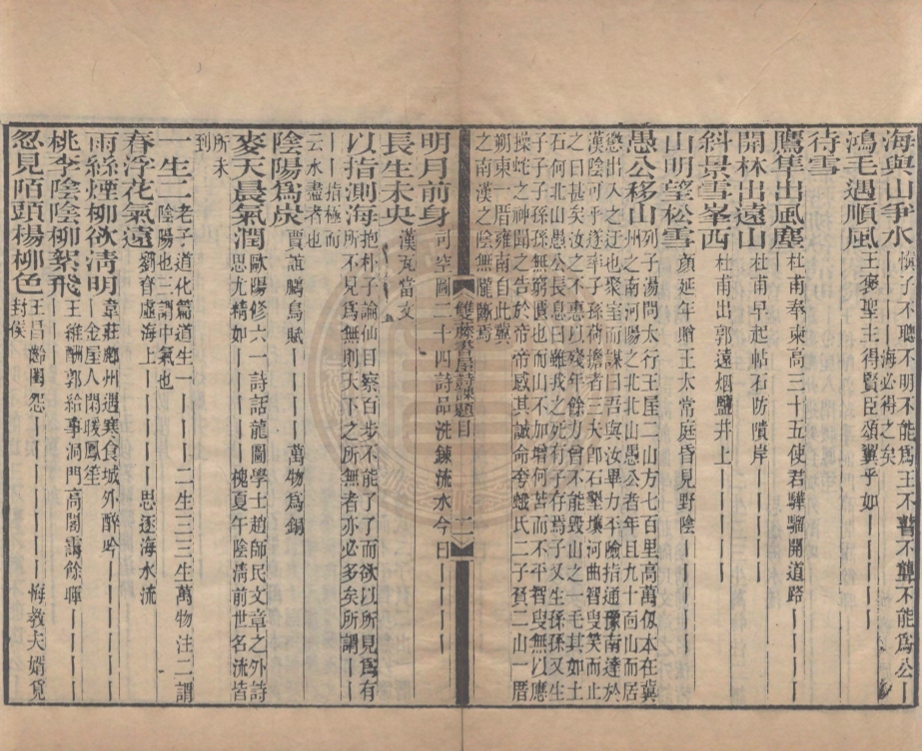 海與山爭水 慎子不聰不明不能為王不瞽不聾不能為公｜
｜｜｜｜海必得之矣
鴻毛遇順風 王褒聖主得賢臣頌翼乎如｜｜｜｜｜
待雪
鷹隼出風塵 杜甫奉柬高三十五使君驊騮開道路｜｜｜｜｜
開林出遠山 杜甫早起帖石防隤岸｜｜｜｜｜
斜景雪峯西 杜甫出郭遠烟鹽井上｜｜｜｜｜
山明望松雪 顏延年贈王太常庭昏見野陰｜｜｜｜｜
愚公移山 列子湯問太行王屋二山方七百里高萬仞本在冀
州之南河陽之北北山愚公者年且九十面山而居
懲出入之迂也聚室而謀曰吾與汝畢力平險指通豫南達於
漢陰可乎遂率子孫荷擔者三夫卽石墾壤河曲智叟笑而止
之曰甚矣汝之不惠以殘年餘力曾不能毀山之一毛其如土
石何北山愚公長息曰雖我之死有子存焉子又生孫孫又生
子子子孫孫無窮匱也而山不加增何苦而不平智叟無以應
操蛇之神聞之告於帝帝感其誠命夸蛾氏二子負二山一厝
朔東一厝雍南自此冀
之南漢之陰無隴斷焉
雙藤書屋詩課題目 二
明月前身 司空圖二十四詩品洗鍊流水今日｜｜｜｜
長生未央 漢瓦當文
以指測海 抱朴子論仙目察百步不能了了而欲以所見為有
所不見為無則天下之所無者亦必多矣所謂｜
｜｜｜指極而
云水盡者也
陰陽為炭 賈誼鵩鳥賦｜｜｜｜萬物為銅
麥天晨氣潤 歐陽修六一詩話龍圖學士趙師民文章之外詩
思尤精如｜｜｜｜｜槐夏午陰清前世名流皆
所未
到
一生二 老子道化篇道生一｜｜｜二生三三生萬物注二謂
陰陽也三謂中氣也
春浮花氣遠 劉脊虛海上｜｜｜｜｜思逐海水流
雨絲煙柳欲清明 韋莊鄜州遇寒食城外醉吟｜｜｜｜
｜｜｜金屋人閒暖鳳笙
桃李陰陰柳絮飛 王維酬郭給事洞門高閣靄餘暉｜｜
｜｜｜｜｜
忽見陌頭楊柳色 王昌齡閨怨｜｜｜｜｜｜｜悔教夫婿覓
封侯